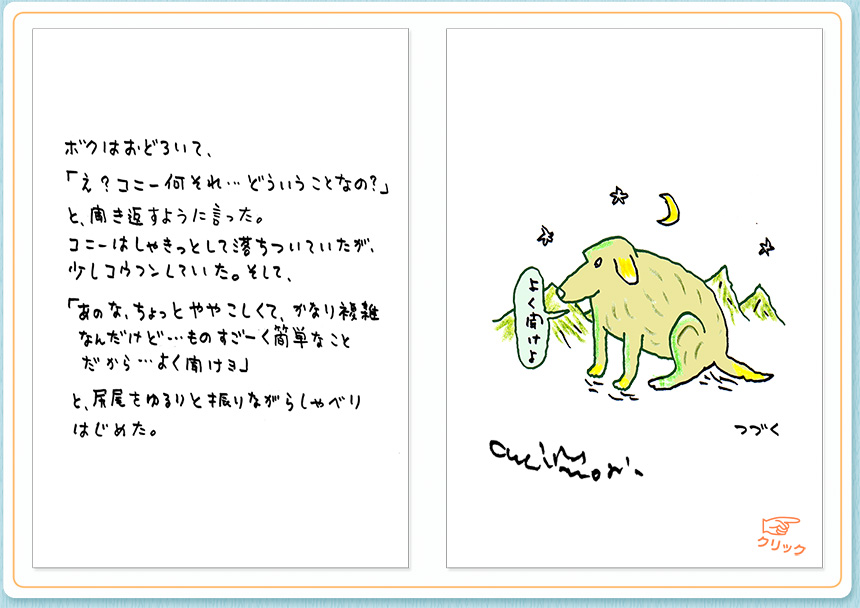 ボクはおどろいて、
「え？コニー何それ…どういうことなの？」
と、聞き返すように言った。
コニーはしゃきっとして落ちついていたが、
少しコウフンしていた。そして、
「あのな、ちょっとややこしくて、かなり複雑
なんだけど…ものすごーく簡単なこと
だから…よく聞けヨ」
と、尻尾をゆるりと振りながらしゃべり
はじめた。
よく聞けよ
つづく
クリック